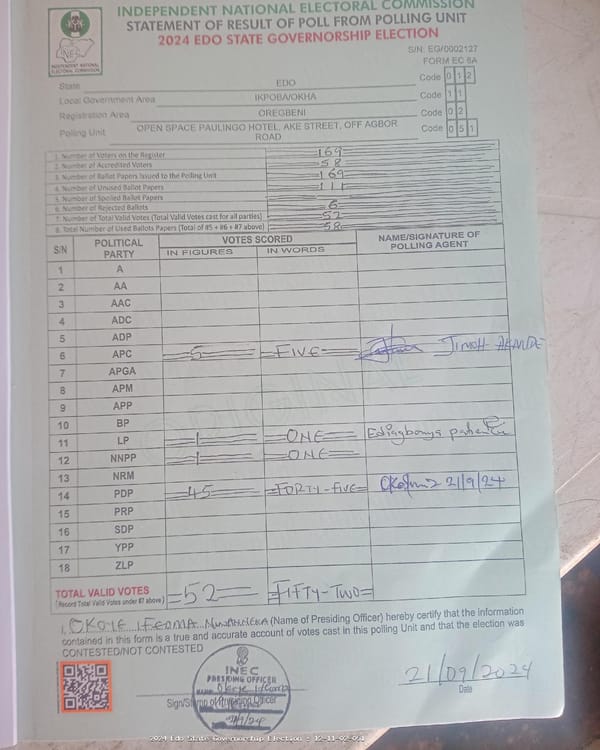 INDEPENDENT NATIONAL ELECTORAL COMMISSION
STATEMENT OF RESULT OF POLL FROM POLLING UNIT
2024 EDO STATE GOVERNORSHIP ELECTION
INEC
INDEPENDENT NATIONAL
ELECTORAL COMMISSION
S/N: EG/0002127
FORM EC 8A
State EDO Code 0 1 2
Local Government Area IKPOBA/OKHA Code 1 1
Registration Area OREGBENI Code 0 2
Polling Unit OPEN SPACE PAULINGO HOTEL, AKE STREET, OFF AGBOR ROAD Code 0 5 1
1. Number of Voters on the Register 169
2. Number of Accredited Voters 58
3. Number of Ballot Papers Issued to the Polling Unit 169
4. Number of Unused Ballot Papers 111
5. Number of Spoiled Ballot Papers
6. Number of Rejected Ballots 6
7. Number of Total Valid Votes (Total Valid Votes cast for all parties) 52
8. Total Number of Used Ballots Papers (Total of #5 + #6 + #7 above) 58
S/N POLITICAL PARTY VOTES SCORED NAME/SIGNATURE OF POLLING AGENT
IN FIGURES IN WORDS
1 A
2 AA
3 AAC
4 ADC
5 ADP
6 APC 5 FIVE JIMOH
7 APGA
8 APM
9 APP
10 BP
11 LP 1 ONE
12 NNPP 1 ONE
13 NRM
14 PDP 45 FORTY-FIVE 21/9/24
15 PRP
16 SDP
17 YPP
18 ZLP
TOTAL VALID VOTES =52= =FIFTY-TWO=
(Record Total Valid Votes under #7 above)
I, OKOYE IFEOMA (Name of Presiding Officer) hereby certify that the information
contained in this form is a true and accurate account of votes cast in this polling Unit and that the election was
CONTESTED/NOT CONTESTED
INEC
PRESIDING OFFICER
21/9/24
Sign/Stamp of Presiding Officer
21/09/2024
Date
2024 Edo State Governorship Election